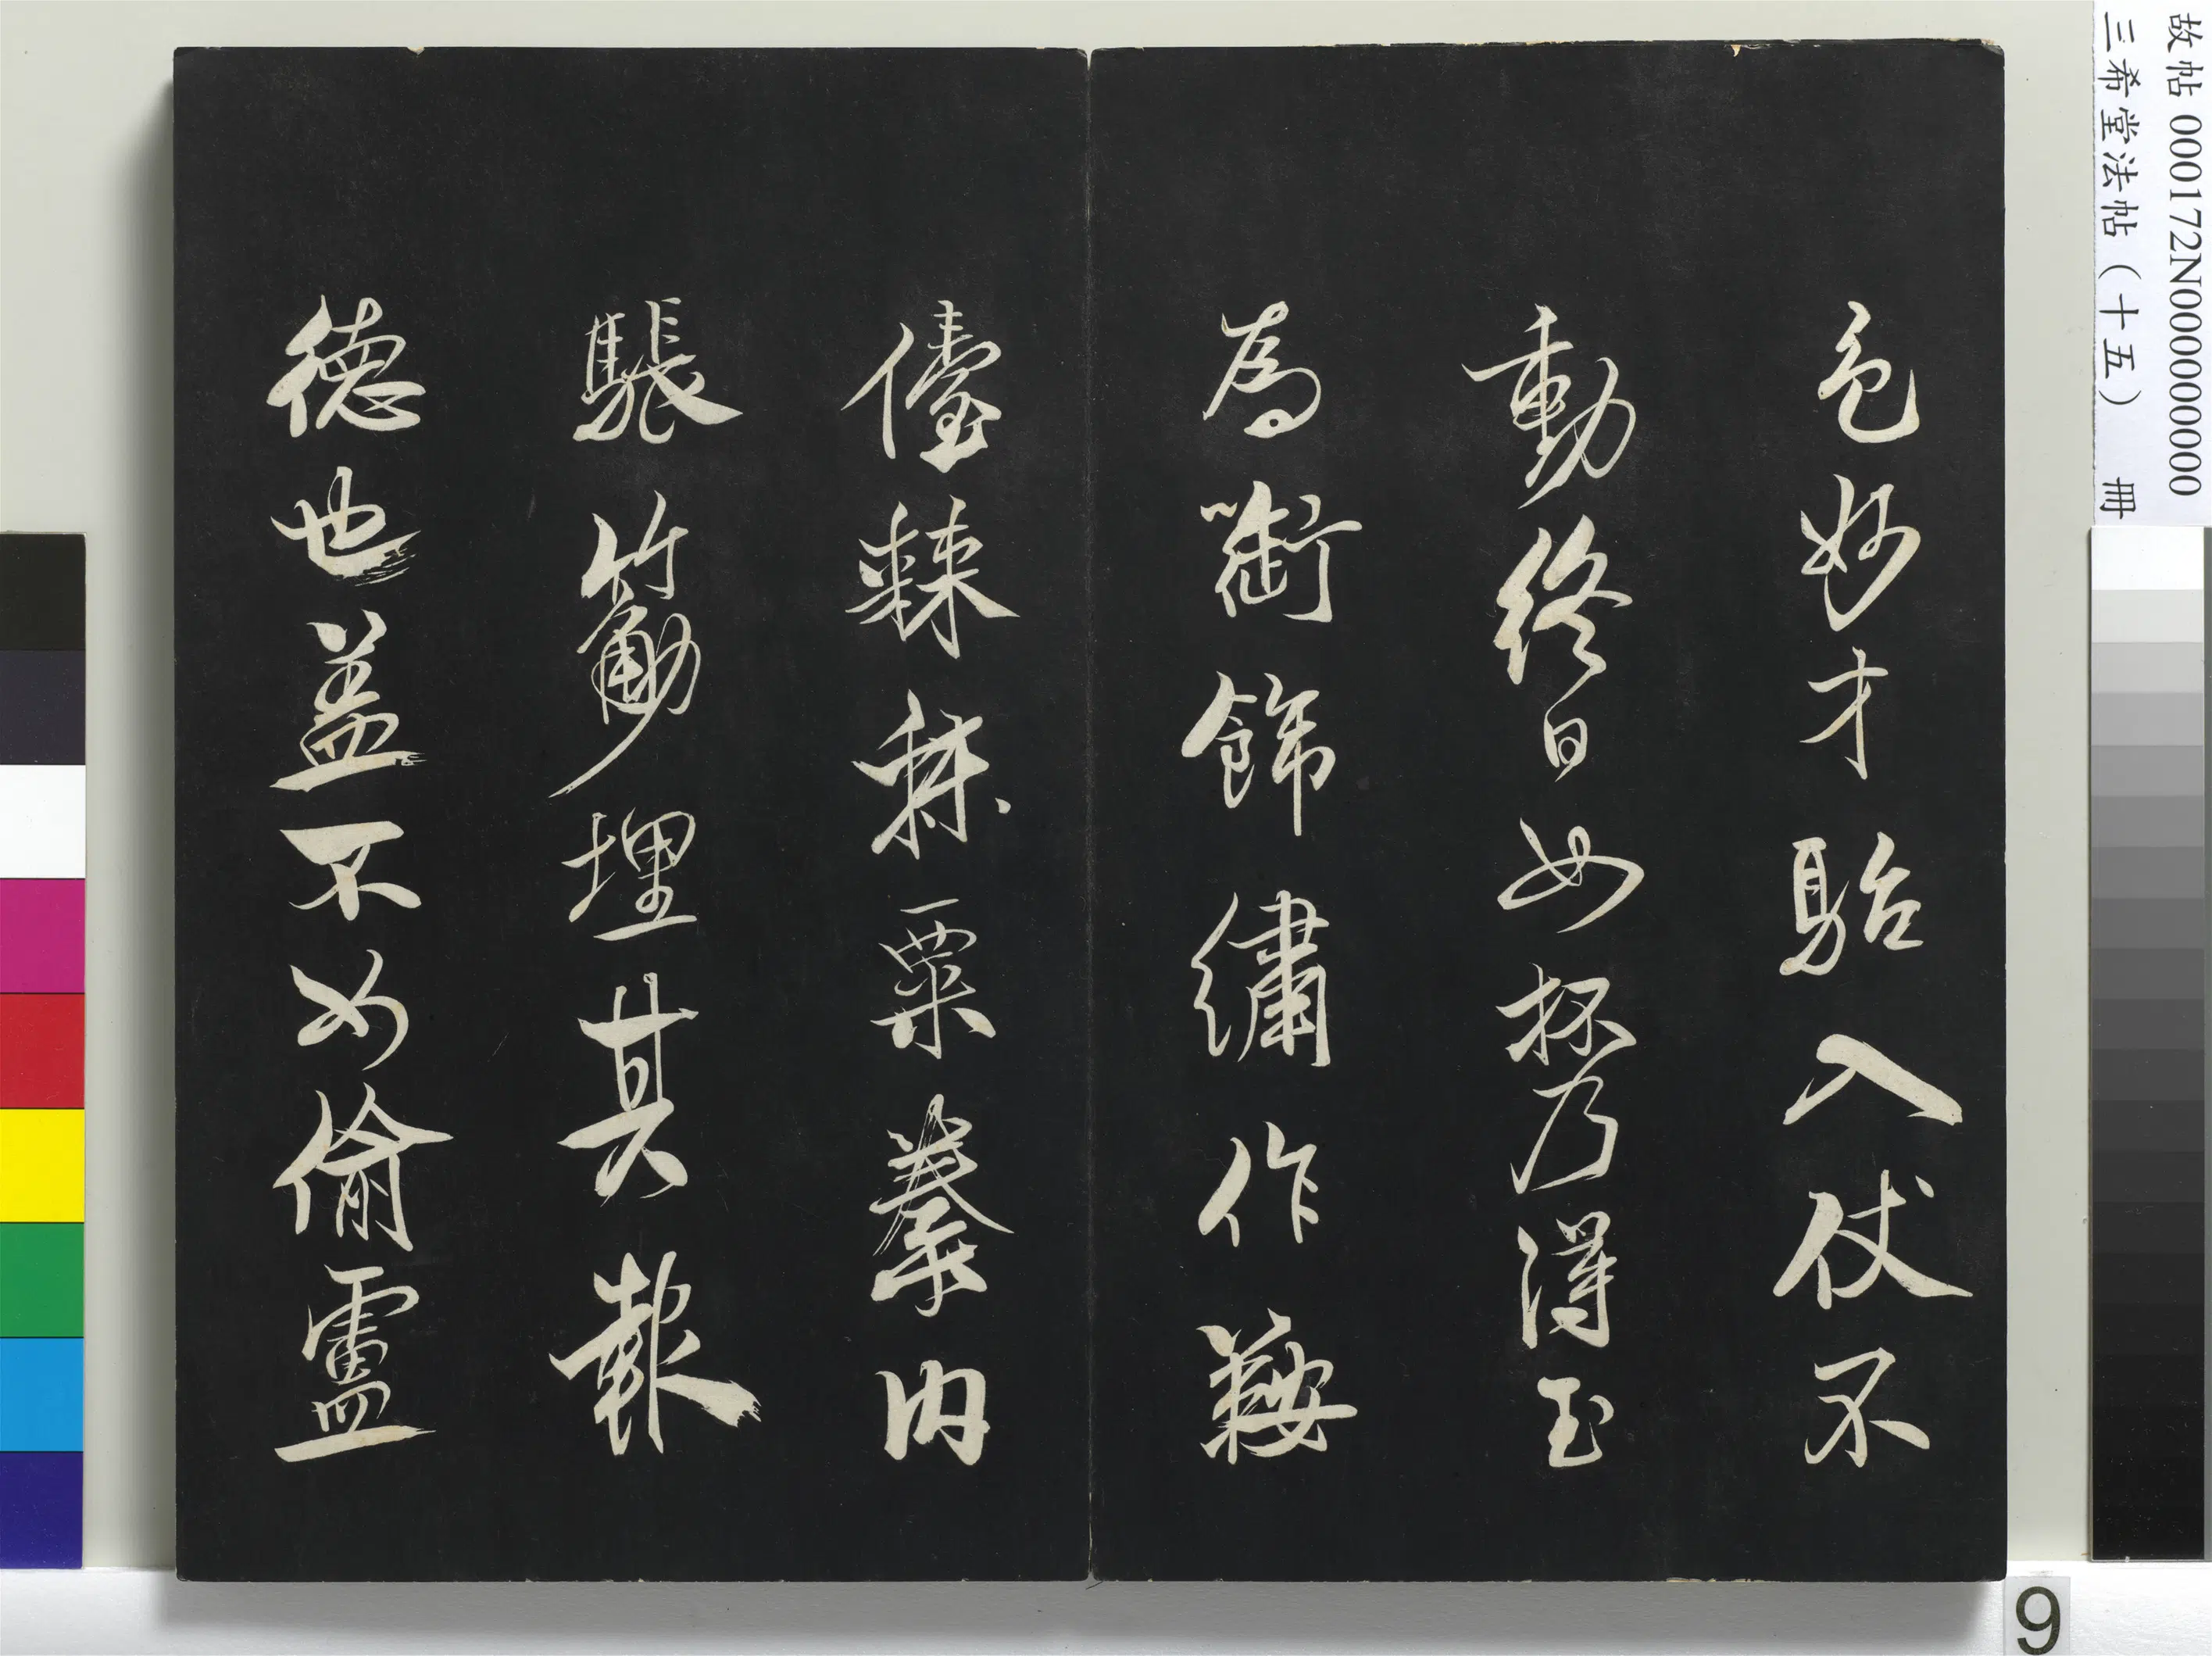 色妙才駘入仗不
動終日如杯乃得玉
為銜飾繡作鞍
儓棘秣粟豢肉
筋埋其報
德也蓋不如偷盧
故帖 000172N000000000
三希堂法帖（十五） 冊
9